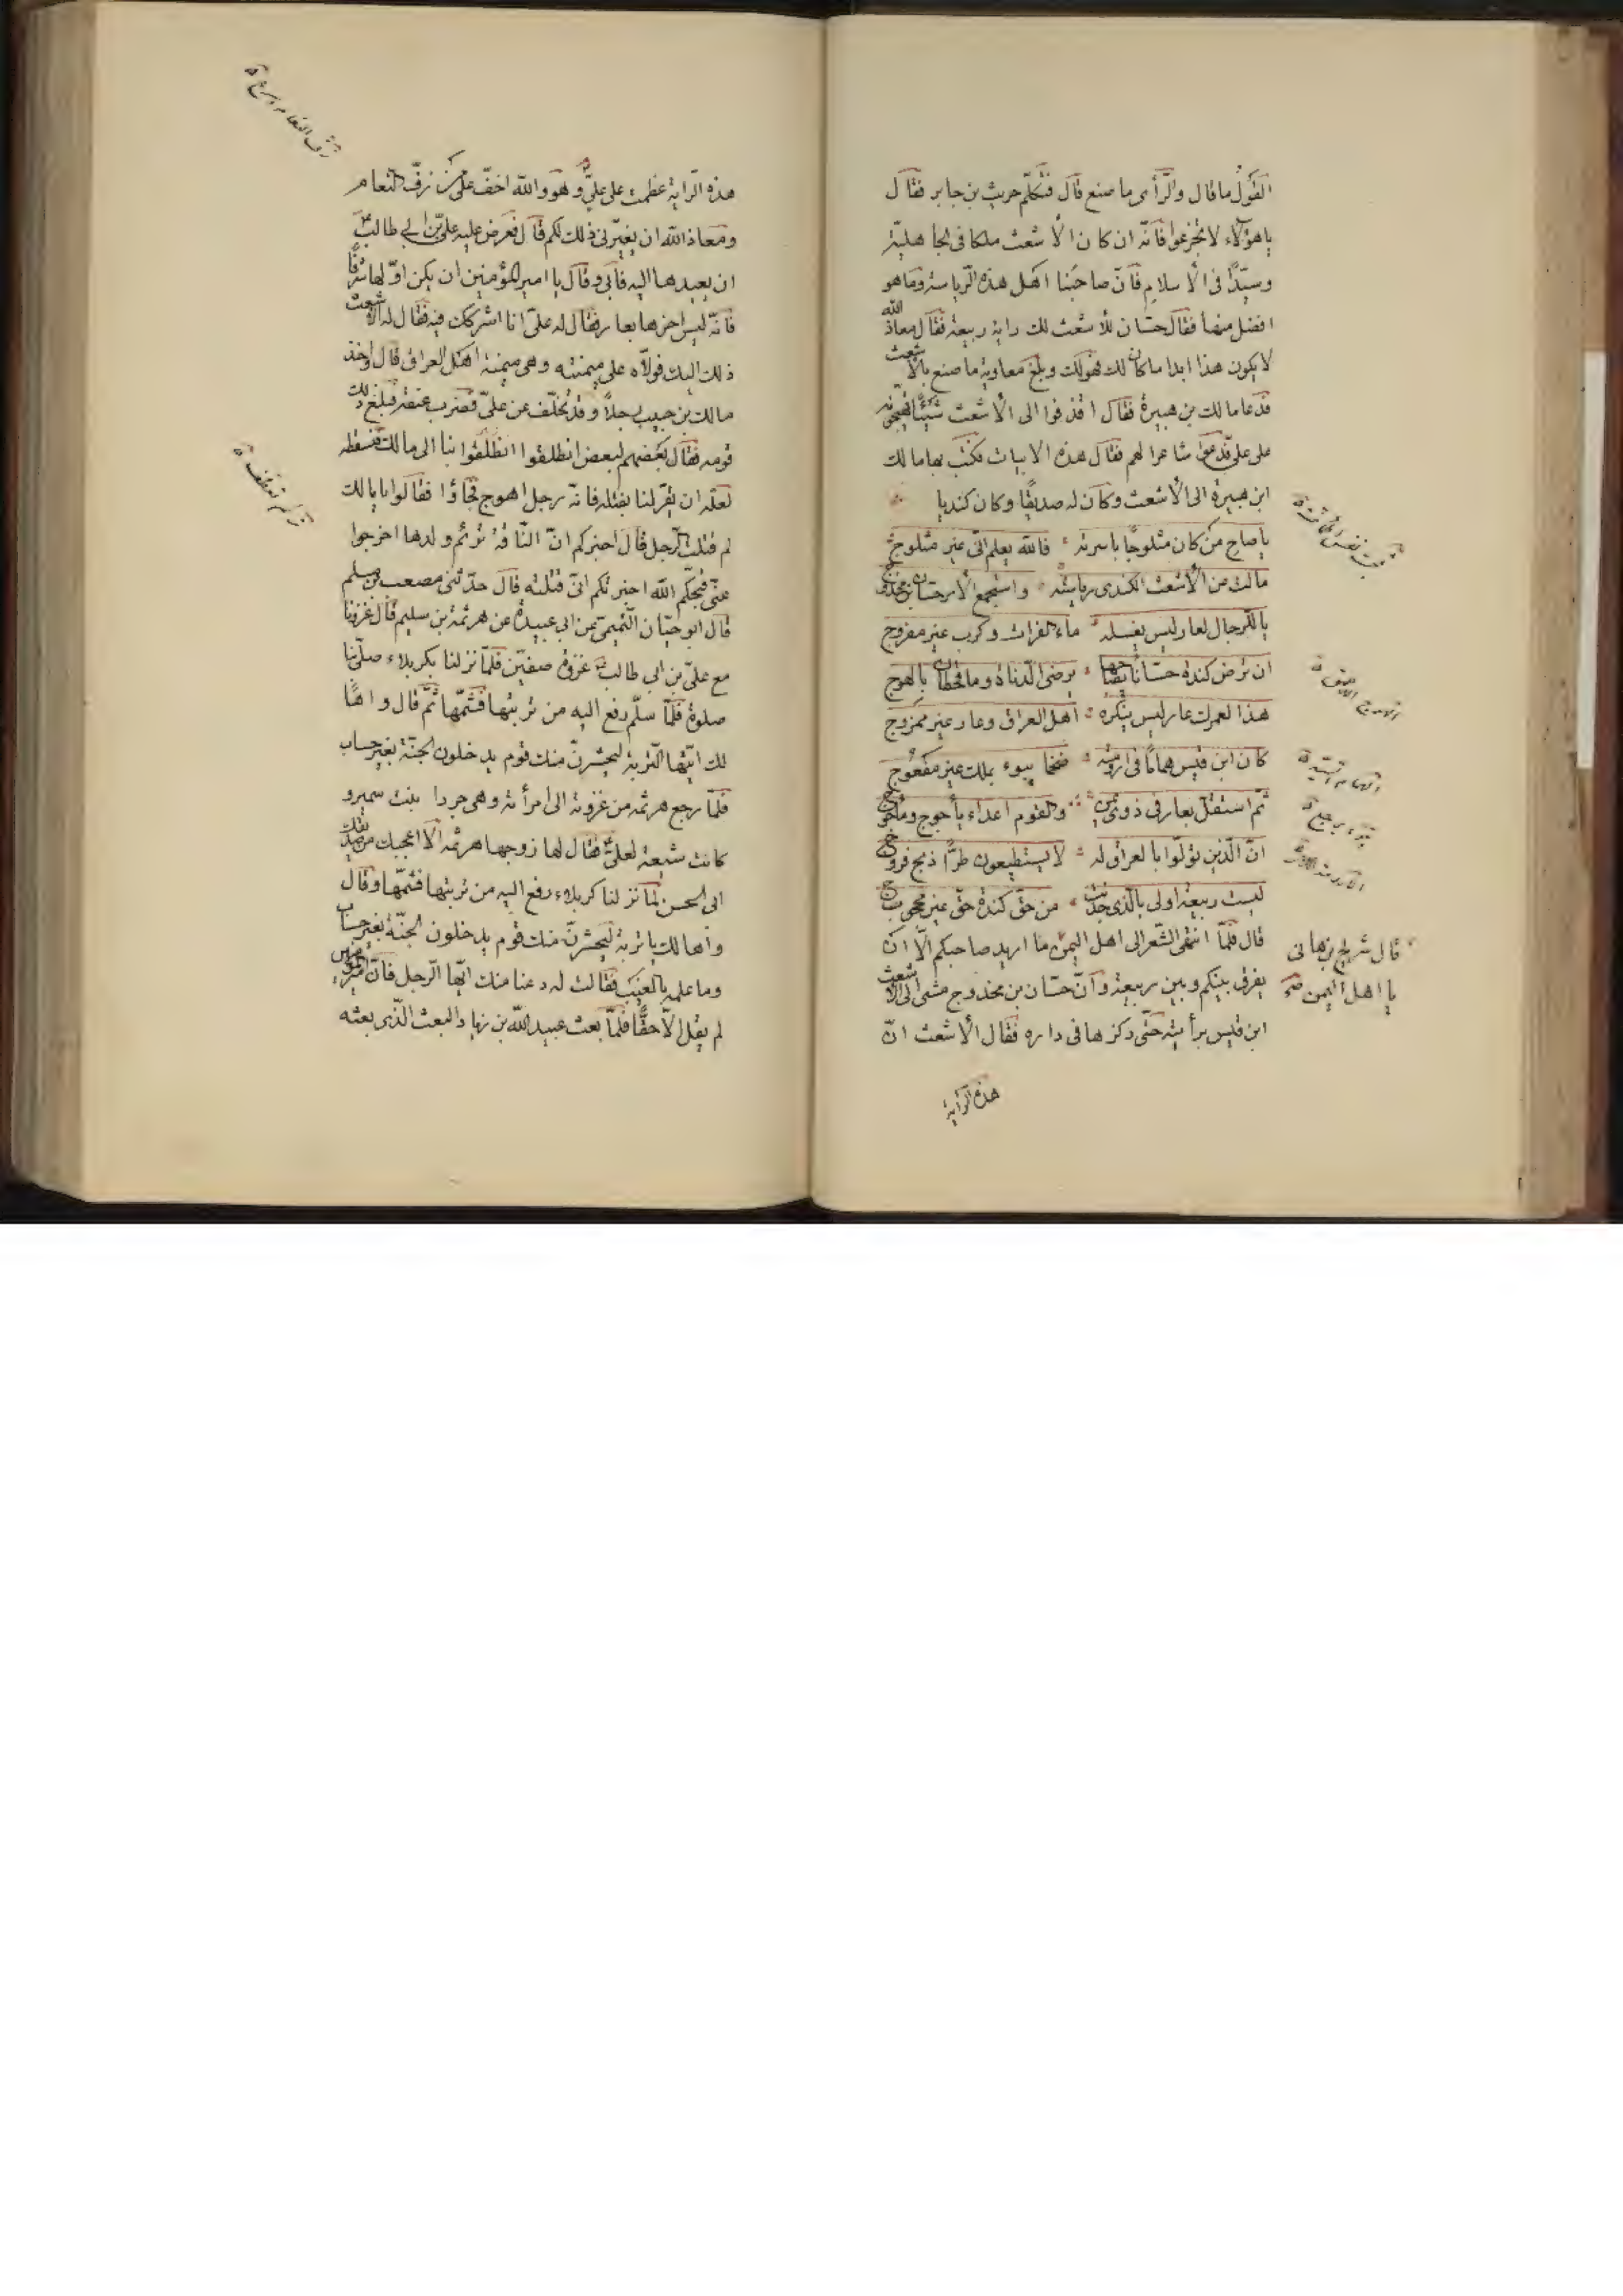 القول ما قال والرأى ما صنع قال فتكلم حريث بن جابر فقال
يا هؤلاء لا تجزعوا فانه ان كان الاشعث ملكا فى الجاهلية
وسيدا فى الاسلام فان صاحبنا اهل هذه الرياسة وما هو
افضل منها فقال حسان للاشعث لك راية ربيعة فقال معاذ الله
لا يكون هذا ابدا ما كان لك فهو لك وبلغ معاوية ما صنع بالاشعث
فدعا مالك بن هبيرة فقال اقذفوا الى الاشعث شيئا تهيجونه
على على فدعوا شاعرا لهم فقال هذه الابيات فكتب بها مالك
ابن هبيرة الى الاشعث وكان له صديقا وكان كنديا
يا صاح من كان مثلوجا باسرته فالله يعلم انى غير مثلوج
مالت من الاشعث الكندى رياسته واستجمع الامر حسان بن مخدوج
يا للرجال لعار ليس يغسله ماء الفرات وكرب غير مفروج
ان ترض كندة حسانا بصاحبها يرضى الدناة وما قحطان بالهوج
هذا لعمرك عار ليس ينكره اهل العراق وعار غير ممزوج
كان ابن قيس هماما فى ارومته ضخما يبوء بملك غير مفعوج
ثم استقل بعار فى ذوى يمن والقوم اعداء يأجوج ومأجوج
ان الذين تولوا بالعراق له لا يستطيعون طرا ذبح فروج
ليست ربيعة اولى بالذى حذيت من حق كندة حق غير محجوج
قال فلما انتهى الشعر الى اهل اليمن ما اريد صاحبكم الا ان
قال شريح بن هانى
يا اهل اليمن
يفرق بينكم وبين ربيعة وان حسان بن مخدوج مشى الى الاشعث
ابن قيس برأيته حتى ركزها فى داره فقال الاشعث ان
هذه الراية
هذه الراية عظمت على على وهو والله اخف على من زف النعام
ومعاذ الله ان يغيرنى ذلك لكم قال فعرض عليه على بن ابى طالب
ان يعيدها اليه فابى وقال يا امير المؤمنين ان يكن اولها شرفا
فانه ليس اخرها بعار فقال له على انا اشركك فيه فقال له الاشعث
ذلك اليك فولاه على ميمنته وهى ميمنة اهل العراق قال واخذ
مالك بن حبيب رجلا وقد تخلف عن على فضرب عنقه فبلغ ذلك
قومه فقال بعضهم لبعض انطلقوا انطلقوا بنا الى مالك فنسقطه
لعله ان يقر لنا بقتله فانه رجل اهوج فجاؤا فقالوا يا مالك
لم قتلت الرجل قال اخبركم ان الناقة ترئم ولدها اخرجوا
عنى قبحكم الله اخبرتكم انى قتلته قال حدثنى مصعب بن سلم
قال ابو حيان التميمى عن ابى عبيدة عن هرثمة بن سليم قال غزونا
مع على بن ابى طالب غزوة صفين فلما نزلنا بكربلاء صلى بنا
صلوة فلما سلم رفع اليه من تربتها فشمها ثم قال واها
لك ايتها التربة ليحشرن منك قوم يدخلون الجنة بغير حساب
فلما رجع هرثمة من غزوته الى امرأته وهى جردا بنت سمير و
كانت شيعة لعلى فقال لها زوجها هرثمة الا اعجبك من صديقك
ابى الحسن لما نزلنا كربلاء رفع اليه من تربتها فشمها وقال
واها لك يا تربة ليحشرن منك قوم يدخلون الجنة بغير حساب
وما علمه بالغيب فقالت له دعنا منك ايها الرجل فان امير المؤمنين
لم يقل الا حقا فلما بعث عبيد الله بن زياد البعث الذى بعثه